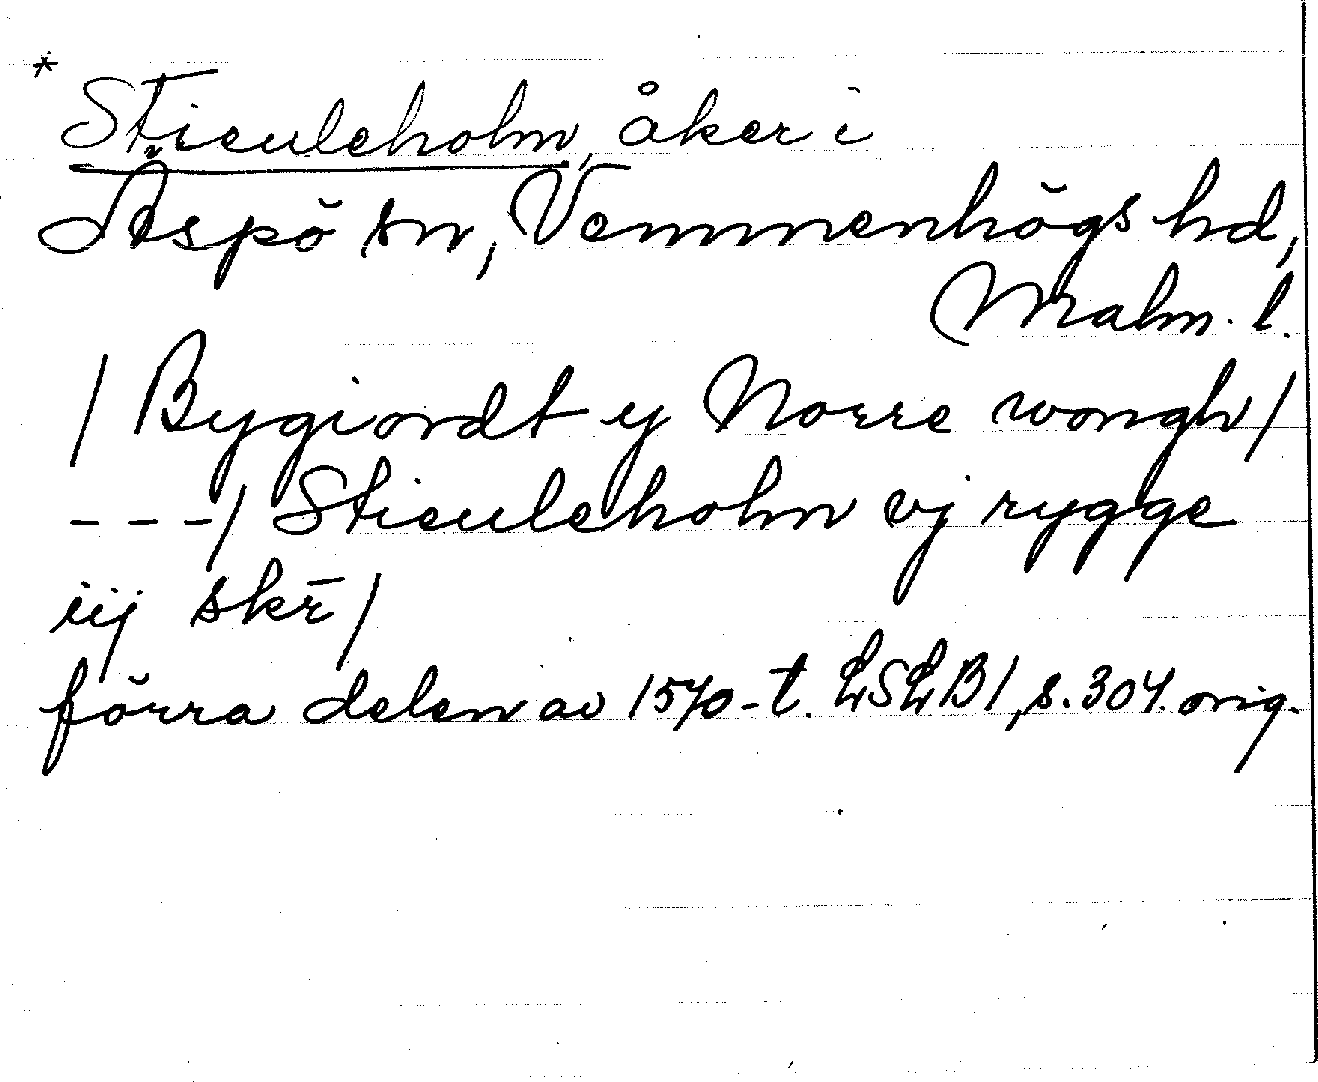 * Stieuleholm, åker i
Äspö sn, Vemmenhögs hd,
Malm. l.
/ Bygiordt y Norre wongh/
- - -/ Stieuleholm vj rygge
iij skr̄ /
förra delen av 1570-t. LSLB1, s. 304. orig.